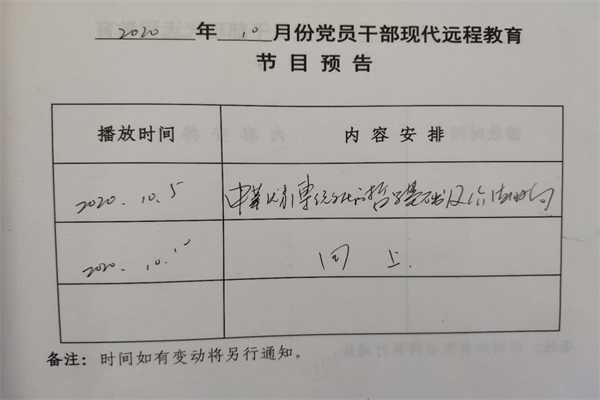 2020 年 10 月份党员干部现代远程教育
节目预告
播放时间 内容安排
2020.10.5 中华优秀传统文化的哲学基础及
2020.10.10 同上.
备注：时间如有变动将另行通知。